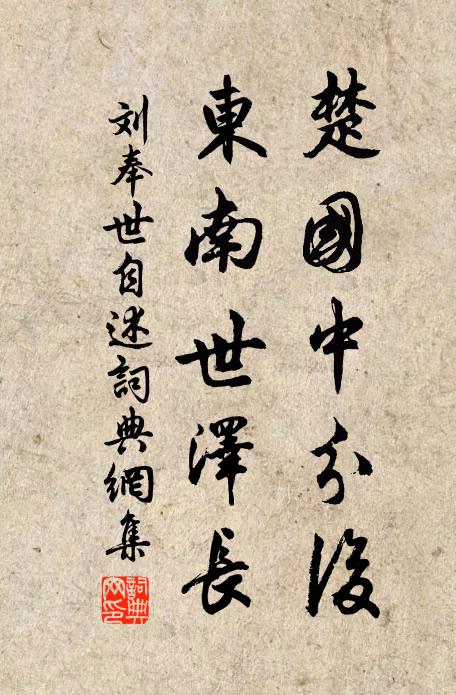 楚國中分後
東南世澤長
刘奉世自述詞典網集
詞典
网印